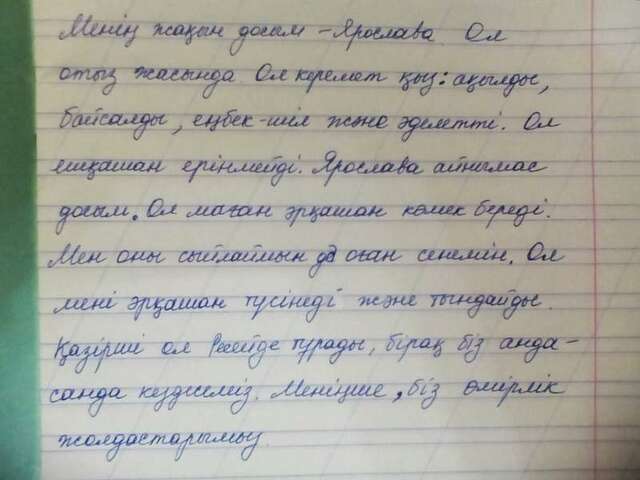 Менің жақын досым – Ярослава. Ол
отыз жасында. Ол керемет қыз: ақылды,
байсалды, еңбек-шіл және әделетті. Ол
ешқашан ерінмейді. Ярослава айнымас
досым. Ол маған әрқашан көмек береді.
Мен оны сыйлаймын да оған сенемін. Ол
мені әрқашан түсінеді және тыңдайды.
Қазірші ол Ресейде тұрады, бірақ біз анда-
санда кездесеміз. Меніңше, біз өмірлік
жолдастарымыз.